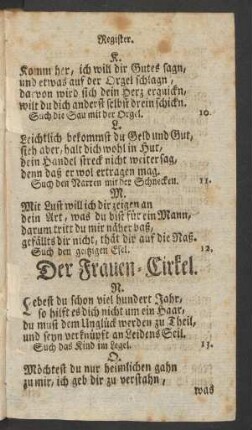 Register.
K.
Komm her, ich will dir Gutes sagn,
und etwas auf der Orgel schlagn,
davon wird sich dein Herz erquickn,
wilt du dich anderst selbst drein schickn.
Such die Sau mit der Orgel. 10.
L.
Leichtlich bekommst du Geld und Gut,
sieh aber, halt dich wohl in Hut,
dein Handel streck nicht weiter sag,
denn daß er wol ertragen mag.
Such den Narren mit der Schnecken. 11.
M.
Mit Lust will ich dir zeigen an
dein Art, was du bist für ein Mann,
darum tritt du mir näher baß,
gefällts dir nicht, thät dir auf die Naß.
Such den geitzigen Esel. 12.
Der Frauen-Cirkel.
N.
Lebest du schon viel hundert Jahr,
so hilft es dich nicht um ein Haar,
du must dem Unglück werden zu Theil,
und seyn verknüpft an Leidens Seil.
Such das Kind im Legel. 13.
O.
Möchtest du nur heimlichen gahn
zu mir, ich geb dir zu verstahn,
was